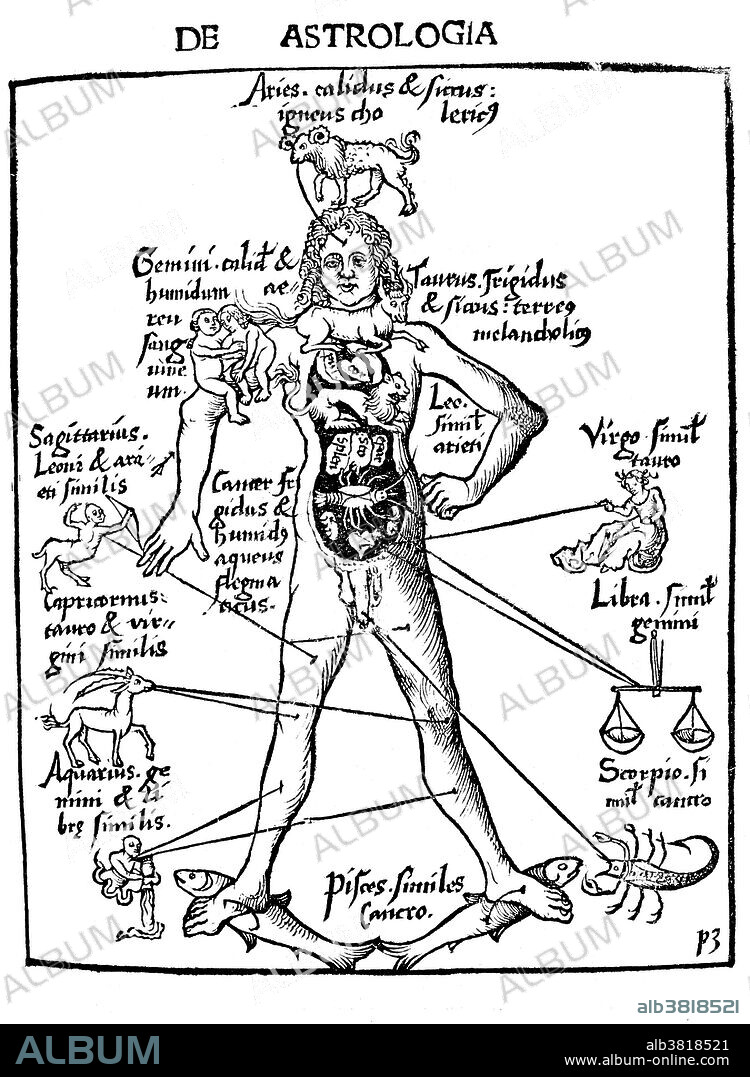 DE ASTROLOGIA
Aries. calidus & siccus:
igneus cho lericꝰ
Gemini. calid & Taurus. frigidus
humidum ae- & siccus: terreꝰ
reu melancholicꝰ
sang
uine
um.
Leo.
simil
arieti
Virgo. simil
tauro
Sagittarius.
Leoni & ara
eti similis
Cancer fri
gidus &
humidꝰ
aqueus
flegma
ticus.
splen
Libra. simil
gemini
Capricornus:
tauro & vir-
gini similis
Aquarius. ge
mini & li
brę similis.
Scorpio. si
mil cancro
Pisces. similes
Cancro.
p3
alb3818521
ALBUM
alb3818521
www.album-online.com